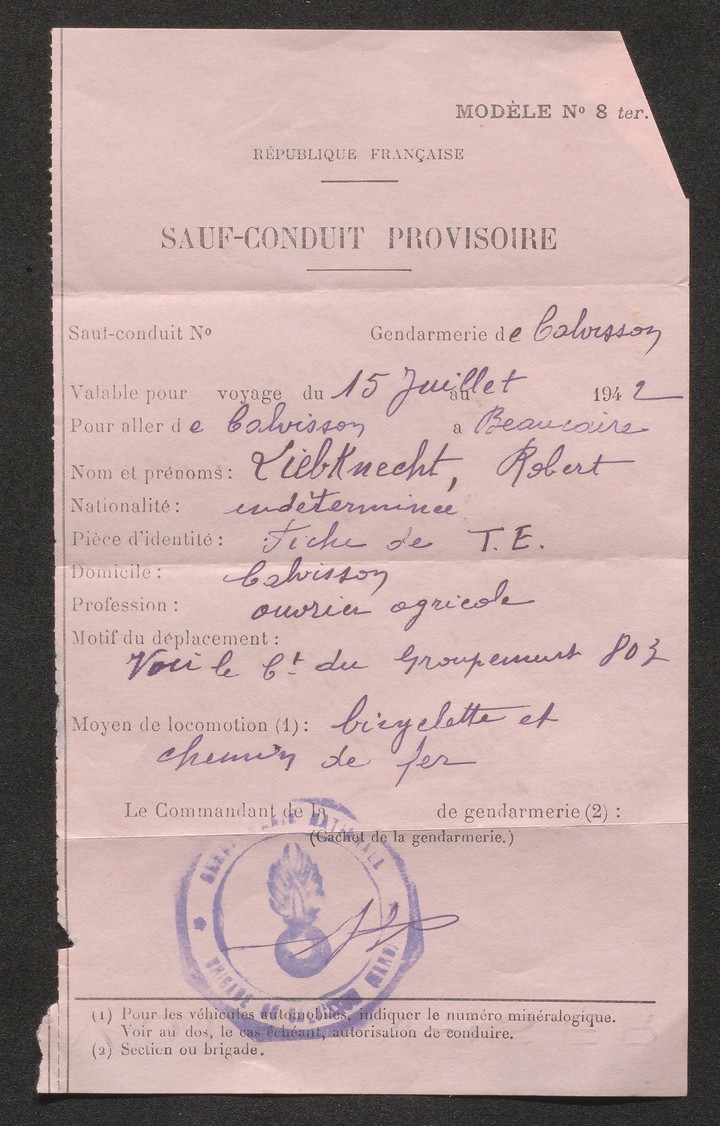 MODÈLE No 8 ter.
RÉPUBLIQUE FRANÇAISE
SAUF-CONDUIT PROVISOIRE
Sauf-conduit No Gendarmerie de Calvisson
Valable pour voyage du 15 Juillet au 1942
Pour aller de Calvisson a Beaucaire
Nom et prénoms : Liebknecht, Robert
Nationalité : indéterminée
Pièce d'identité : Fiche de T.E.
Domicile : Calvisson
Profession : ouvrier agricole
Motif du déplacement :
Voir le Ct du Groupement 803
Moyen de locomotion (1) : bicyclette et
chemin de fer
Le Commandant de la de gendarmerie (2) :
(Cachet de la gendarmerie.)
GENDARMERIE NATIONALE
BRIGADE DE
(1) Pour les véhicules automobiles, indiquer le numéro minéralogique.
Voir au dos, le cas échéant, autorisation de conduire.
(2) Section ou brigade.